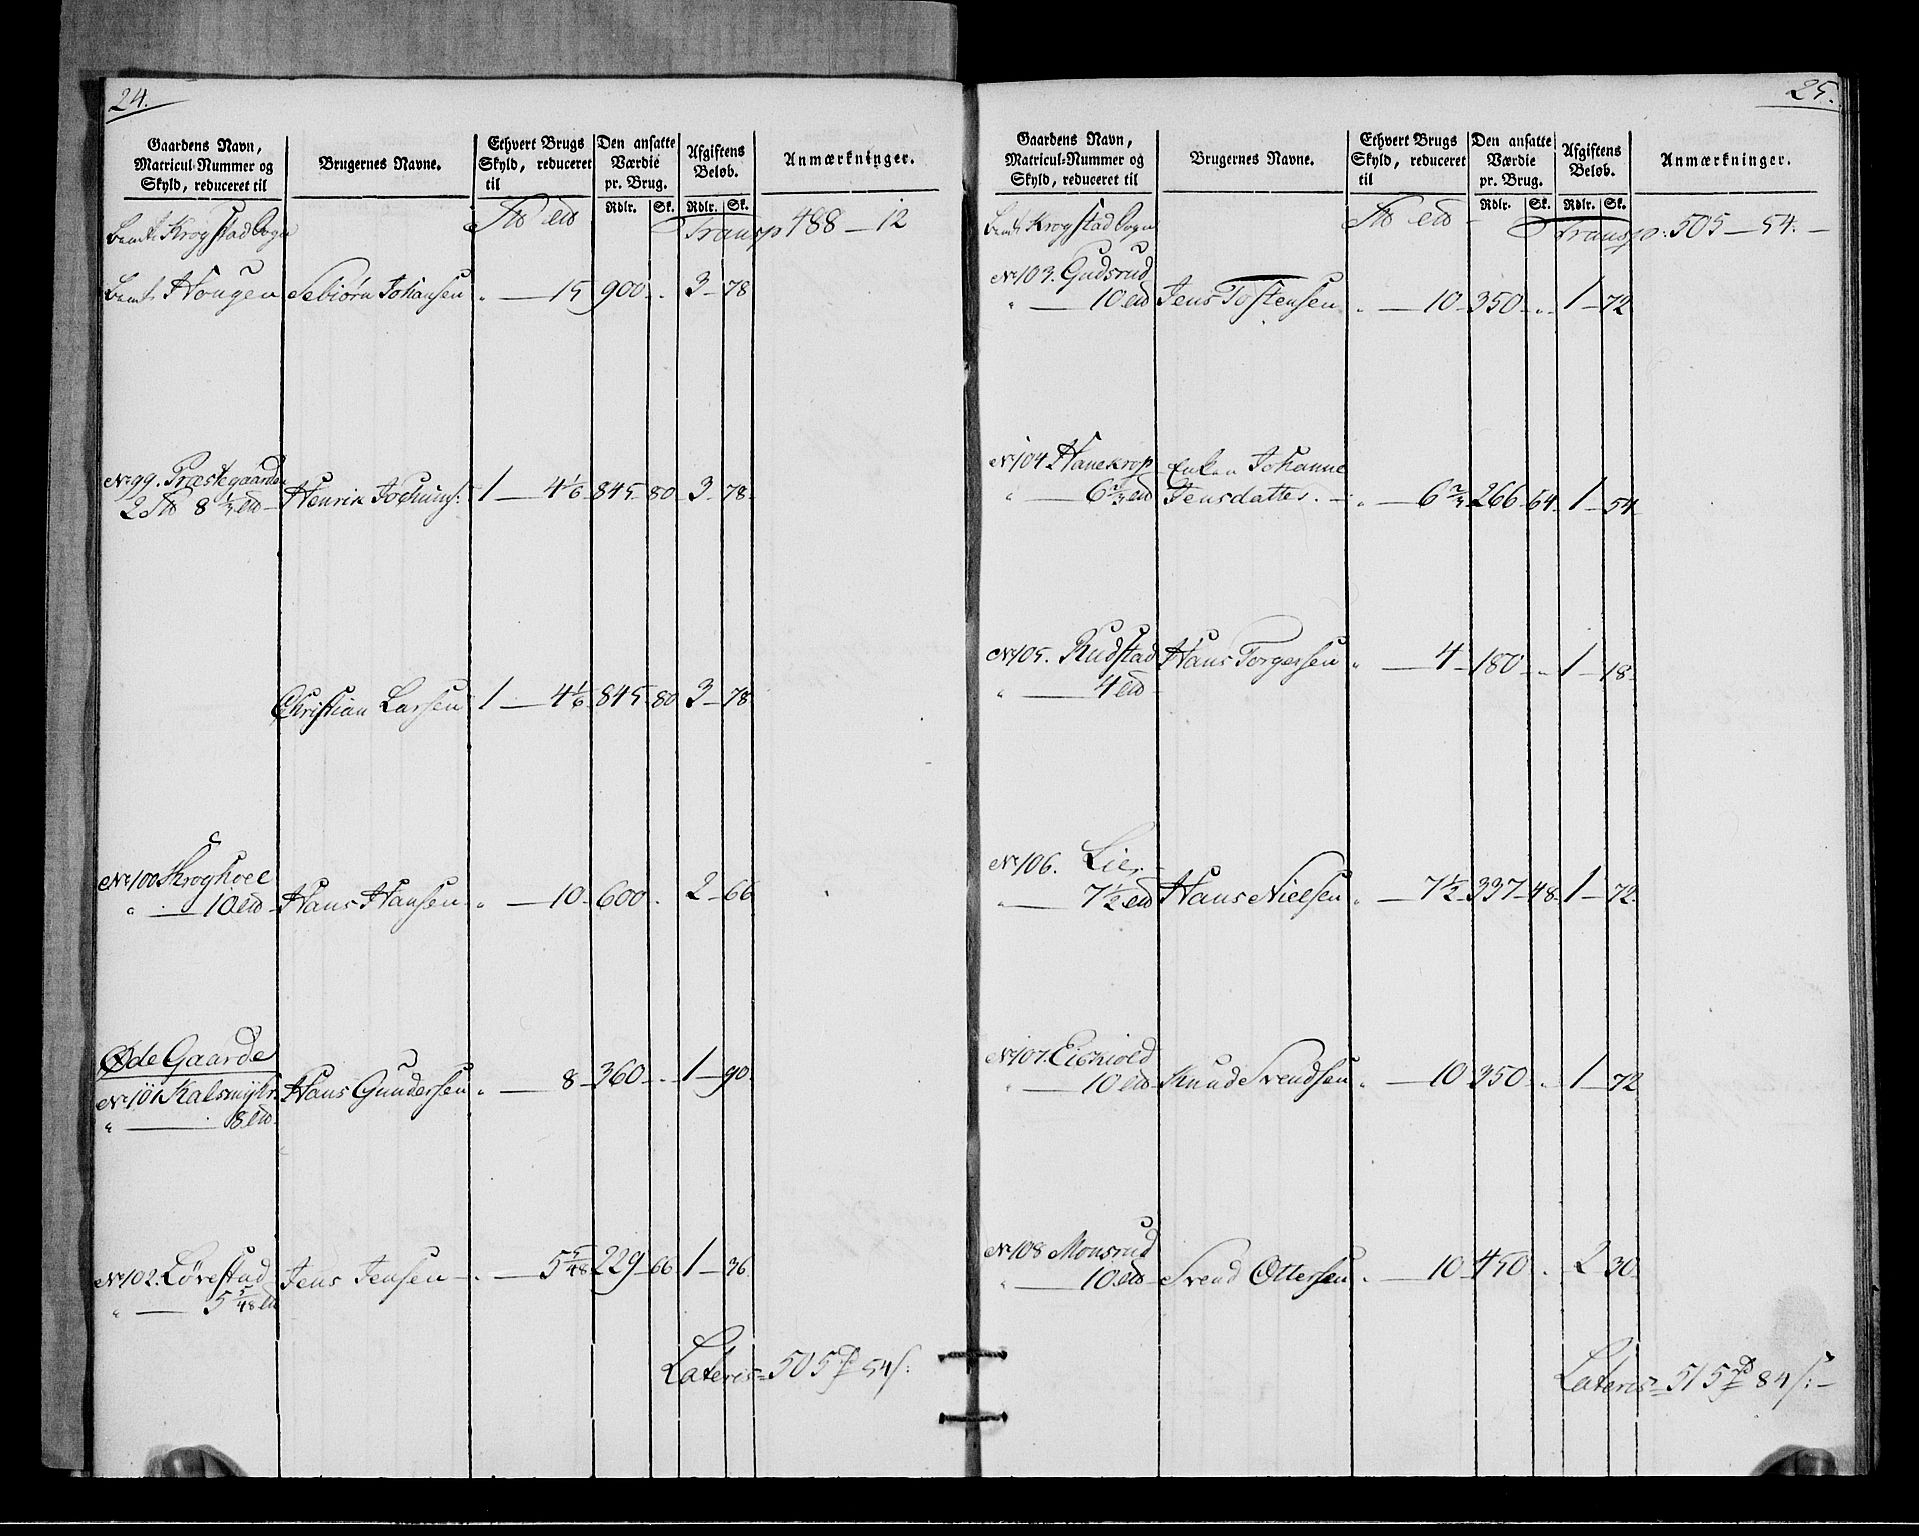 24.
Gaardens Navn, Matricul-Nummer og Skyld, reduceret til | Brugernes Navne. | Ethvert Brugs Skyld, reduceret til | Den ansatte Værdie pr. Brug. Rdlr. Sk. | Afgiftens Beløb. Rdlr. Sk. | Anmærkninger.
Bemte Krogstad Sogn Transp 488 — 12
Bemte Hougen Sebiørn Johansen " — 15 900 " 3 — 78
No 99. Præstegaarden
2 8 1/3 Henrik Jochums: 1 — 4 1/6 845 — 80 3 — 78
Christian Larsen 1 — 4 1/6 845 — 80 3 — 78
No 100 Kroghoel
" — 10 Hans Hansen " — 10 600 " 2 — 66
Øde Gaarde
No 101 Kalsmyhr Hans Gundersen " — 8 360 " 1 — 90
" — 8
No 102. Løvestad Jens Jensen " — 5 5/48 229 — 66 1 — 36
" — 5 5/48
Lateris = 505 54
25.
Gaardens Navn, Matricul-Nummer og Skyld, reduceret til | Brugernes Navne. | Ethvert Brugs Skyld, reduceret til | Den ansatte Værdie pr. Brug. Rdlr. Sk. | Afgiftens Beløb. Rdlr. Sk. | Anmærkninger.
Bemte Krogstad Sogn Transp: 505 — 54. —
No 103. Gudsrud
" — 10 Jens Tostensen " — 10 350 " 1 — 72
No 104 Hanekrop Enken Johanne
" — 6 2/3 Jensdatter. " — 6 2/3 266 — 64 1 — 54
No 105. Rudstad Hans Torgersen " — 4 180 " 1 — 18
" — 4
No 106. Lier
" — 7 1/2 Hans Nielsen " — 7 1/2 337 — 48 1 — 72
No 107.
" — 10 Knud Svendsen " — 10 350 " 1 — 72
No 108 Monsrud
" — 10 Svend Ottersen " — 10 450 " 2 30
Lateris = 515 84